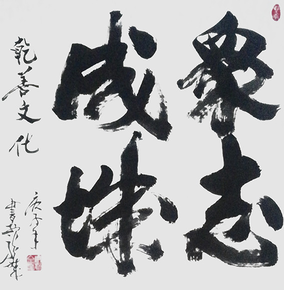 眾志
成城
乾善文化
庚子年